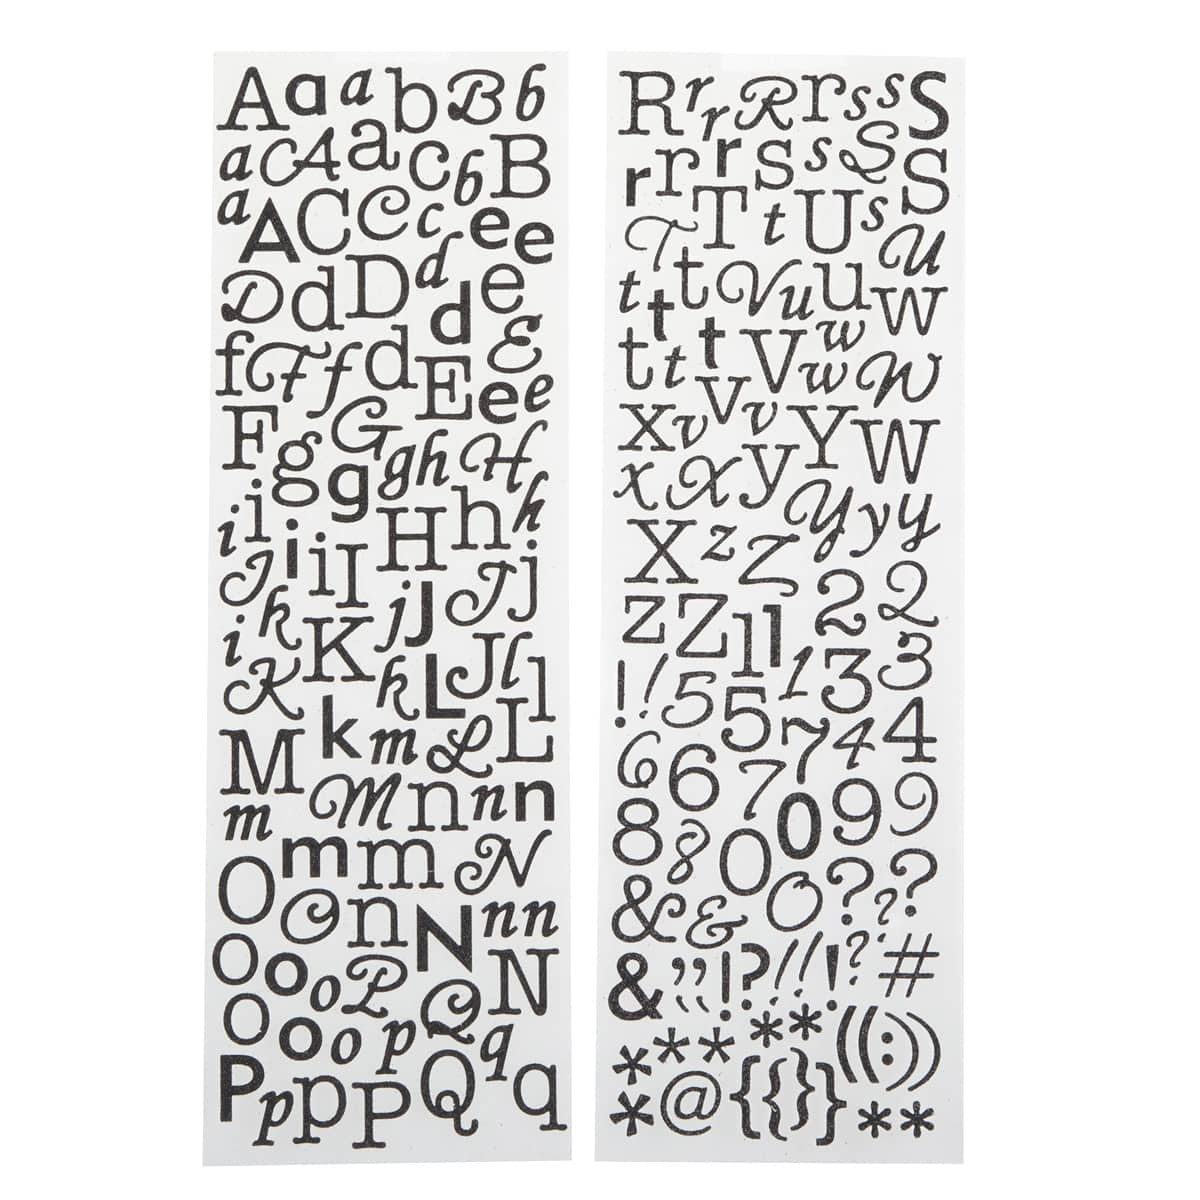 A a a b B b
a C A a c b B
a A C C c e e
D d D d d e
f F f d E e e E
F g G g g h H
i i i i I H h h
J k K j J J j
i K k L J l l
M k m L L
m M n n n
O m m N
O n N n n
O o o P N
O o o p Q q
P p p P Q q
R r r R r s s S
r r r S s S S
T T t U s U
t t t V u u W
t t t V w w W
x v V v Y W
x X y Y y y
X z Z 2 2
Z Z 1 1 1 3 3
! ! 5 5 7 4 4
6 6 7 0 9 9
8 8 0 0 ? ? ?
& & , , ! ? ! ! ! ? #
& * * * * ( ( : ) )
* @ { { } }
* * *